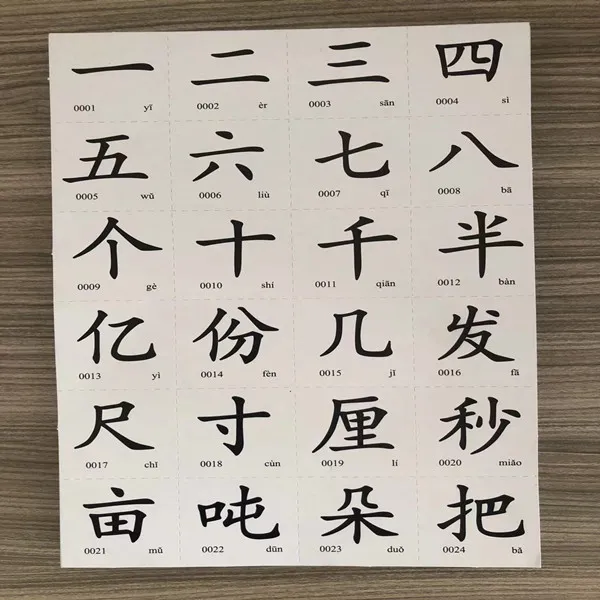 一 二 三 四
0001 yī 0002 èr 0003 sān 0004 sì
五 六 七 八
0005 wǔ 0006 liù 0007 qī 0008 bā
个 十 千 半
0009 gè 0010 shí 0011 qiān 0012 bàn
亿 份 几 发
0013 yì 0014 fèn 0015 jǐ 0016 fā
尺 寸 厘 秒
0017 chǐ 0018 cùn 0019 lí 0020 miǎo
亩 吨 朵 把
0021 mǔ 0022 dūn 0023 duǒ 0024 bǎ